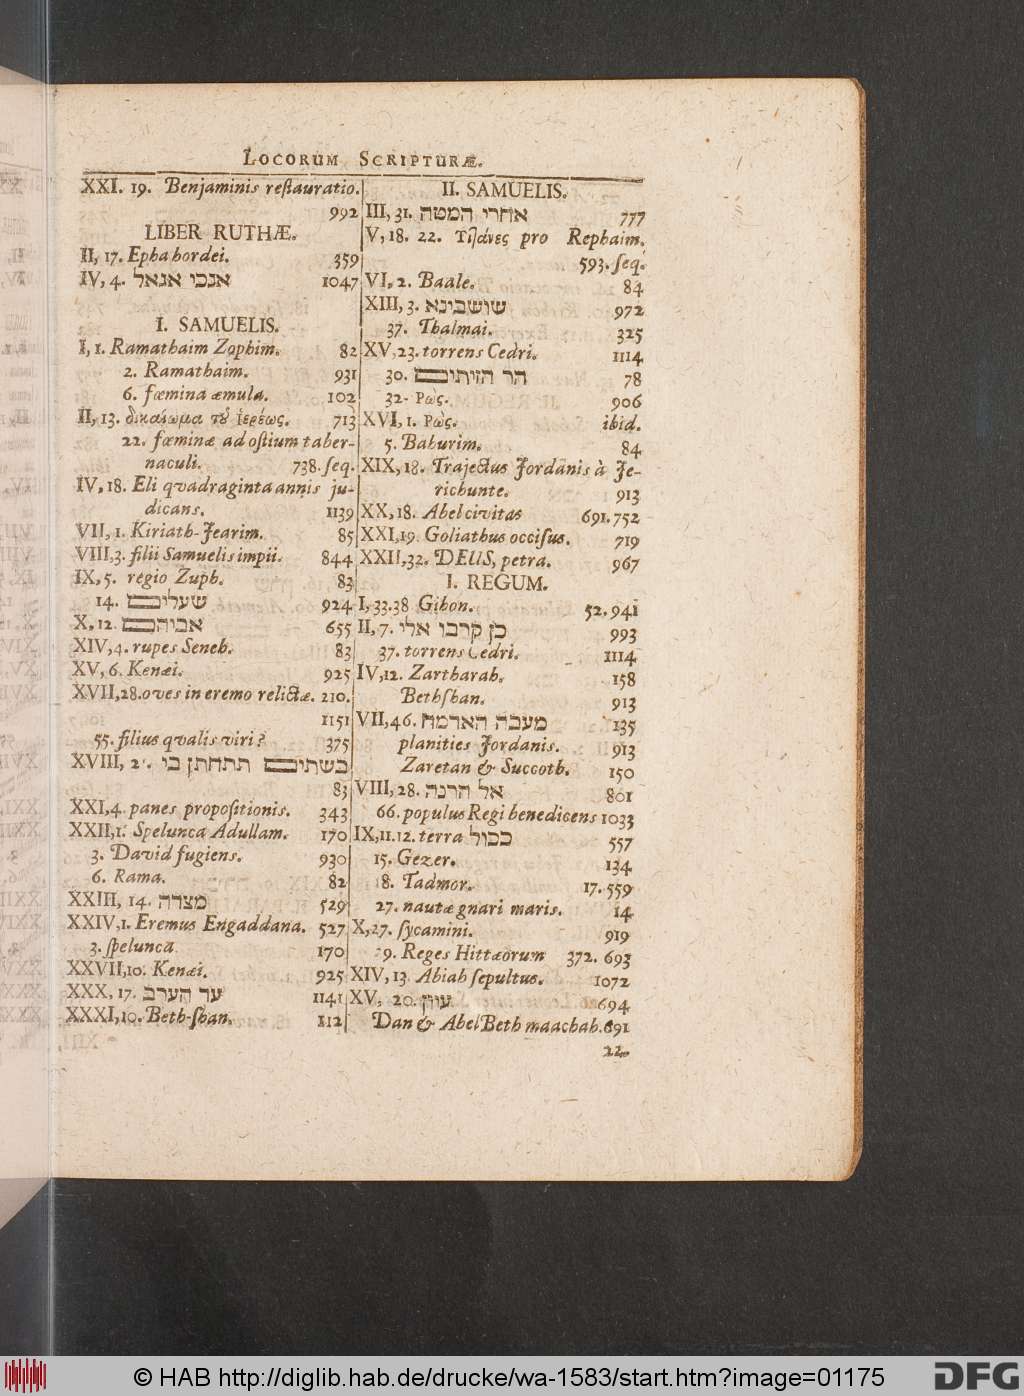 LOCORUM SCRIPTURÆ.
XXI. 19. Benjaminis reſtauratio.
992
LIBER RUTHÆ.
II, 17. Epha hordei. 359
IV, 4. אנכי אגאל 1047
I. SAMUELIS.
I, 1. Ramathaim Zophim. 82
2. Ramathaim. 931
6. fœmina æmula. 102
II, 13. δικαίωμα τοῦ ἱερέως. 713
22. fœminæ ad oſtium taber-
naculi. 738. ſeq.
IV, 18. Eli qvadraginta annis ju-
dicans. 1139
VII, 1. Kiriath-Jearim. 85
VIII,3. filii Samuelis impii. 844
IX, 5. regio Zuph. 83
14. שעלים 924
X. 12. אביהם 655
XIV, 4. rupes Seneh. 83
XV, 6. Kenæi. 925
XVII,28. oves in eremo relictæ. 210.
1151
55. filius qvalis viri? 375
XVIII, 2. בשתים תתחתן בי
83
XXI,4. panes propoſitionis. 343
XXII,1. Spelunca Adullam. 170
3. David fugiens. 930
6. Rama. 82
XXIII, 14. מצרה 529
XXIV,1. Eremus Engaddana. 527
3. ſpelunca 170
XXVII,10. Kenæi. 925
XXX, 17. עד הערב 1141
XXXI,10. Beth-ſhan. 112
II. SAMUELIS.
III, 31. אחרי המטה 777
V, 18. 22. Τιτάνες pro Rephaim.
593. ſeq.
VI, 2. Baale. 84
XIII, 3. שושבינא 972
37. Thalmai. 325
XV, 23. torrens Cedri. 1114
30. הר הזיתים 78
32. Ρὼς. 906
XVI, 1. Ρὼς. ibid.
5. Bahurim. 84
XIX, 18. Trajectus Jordanis à Je-
richunte. 913
XX, 18. Abel civitas 691. 752
XXI,19. Goliathus occiſus. 719
XXII,32. DEUS, petra. 967
I. REGUM.
I, 33.38 Gihon. 52. 941
II, 7. כן קרבו אלי 993
37. torrens Cedri. 1114
IV, 12. Zartharah. 158
Bethſhan. 913
VII, 46. מעבה הארמה 135
planities Jordanis. 913
Zaretan & Succoth. 150
VIII, 28. אל הרנה 801
66. populus Regi benedicens 1033
IX, 11. 12. terra כבול 557
15. Gezer. 134
18. Tadmor. 17. 559
27. nautæ gnari maris. 14
X, 27. ſycamini. 919
29. Reges Hittæorum 372. 693
XIV, 13. Abiah ſepultus. 1072
XV, 20. עיון 694
Dan & Abel Beth maachah. 691
22.
© HAB http://diglib.hab.de/drucke/wa-1583/start.htm?image=01175
DFG